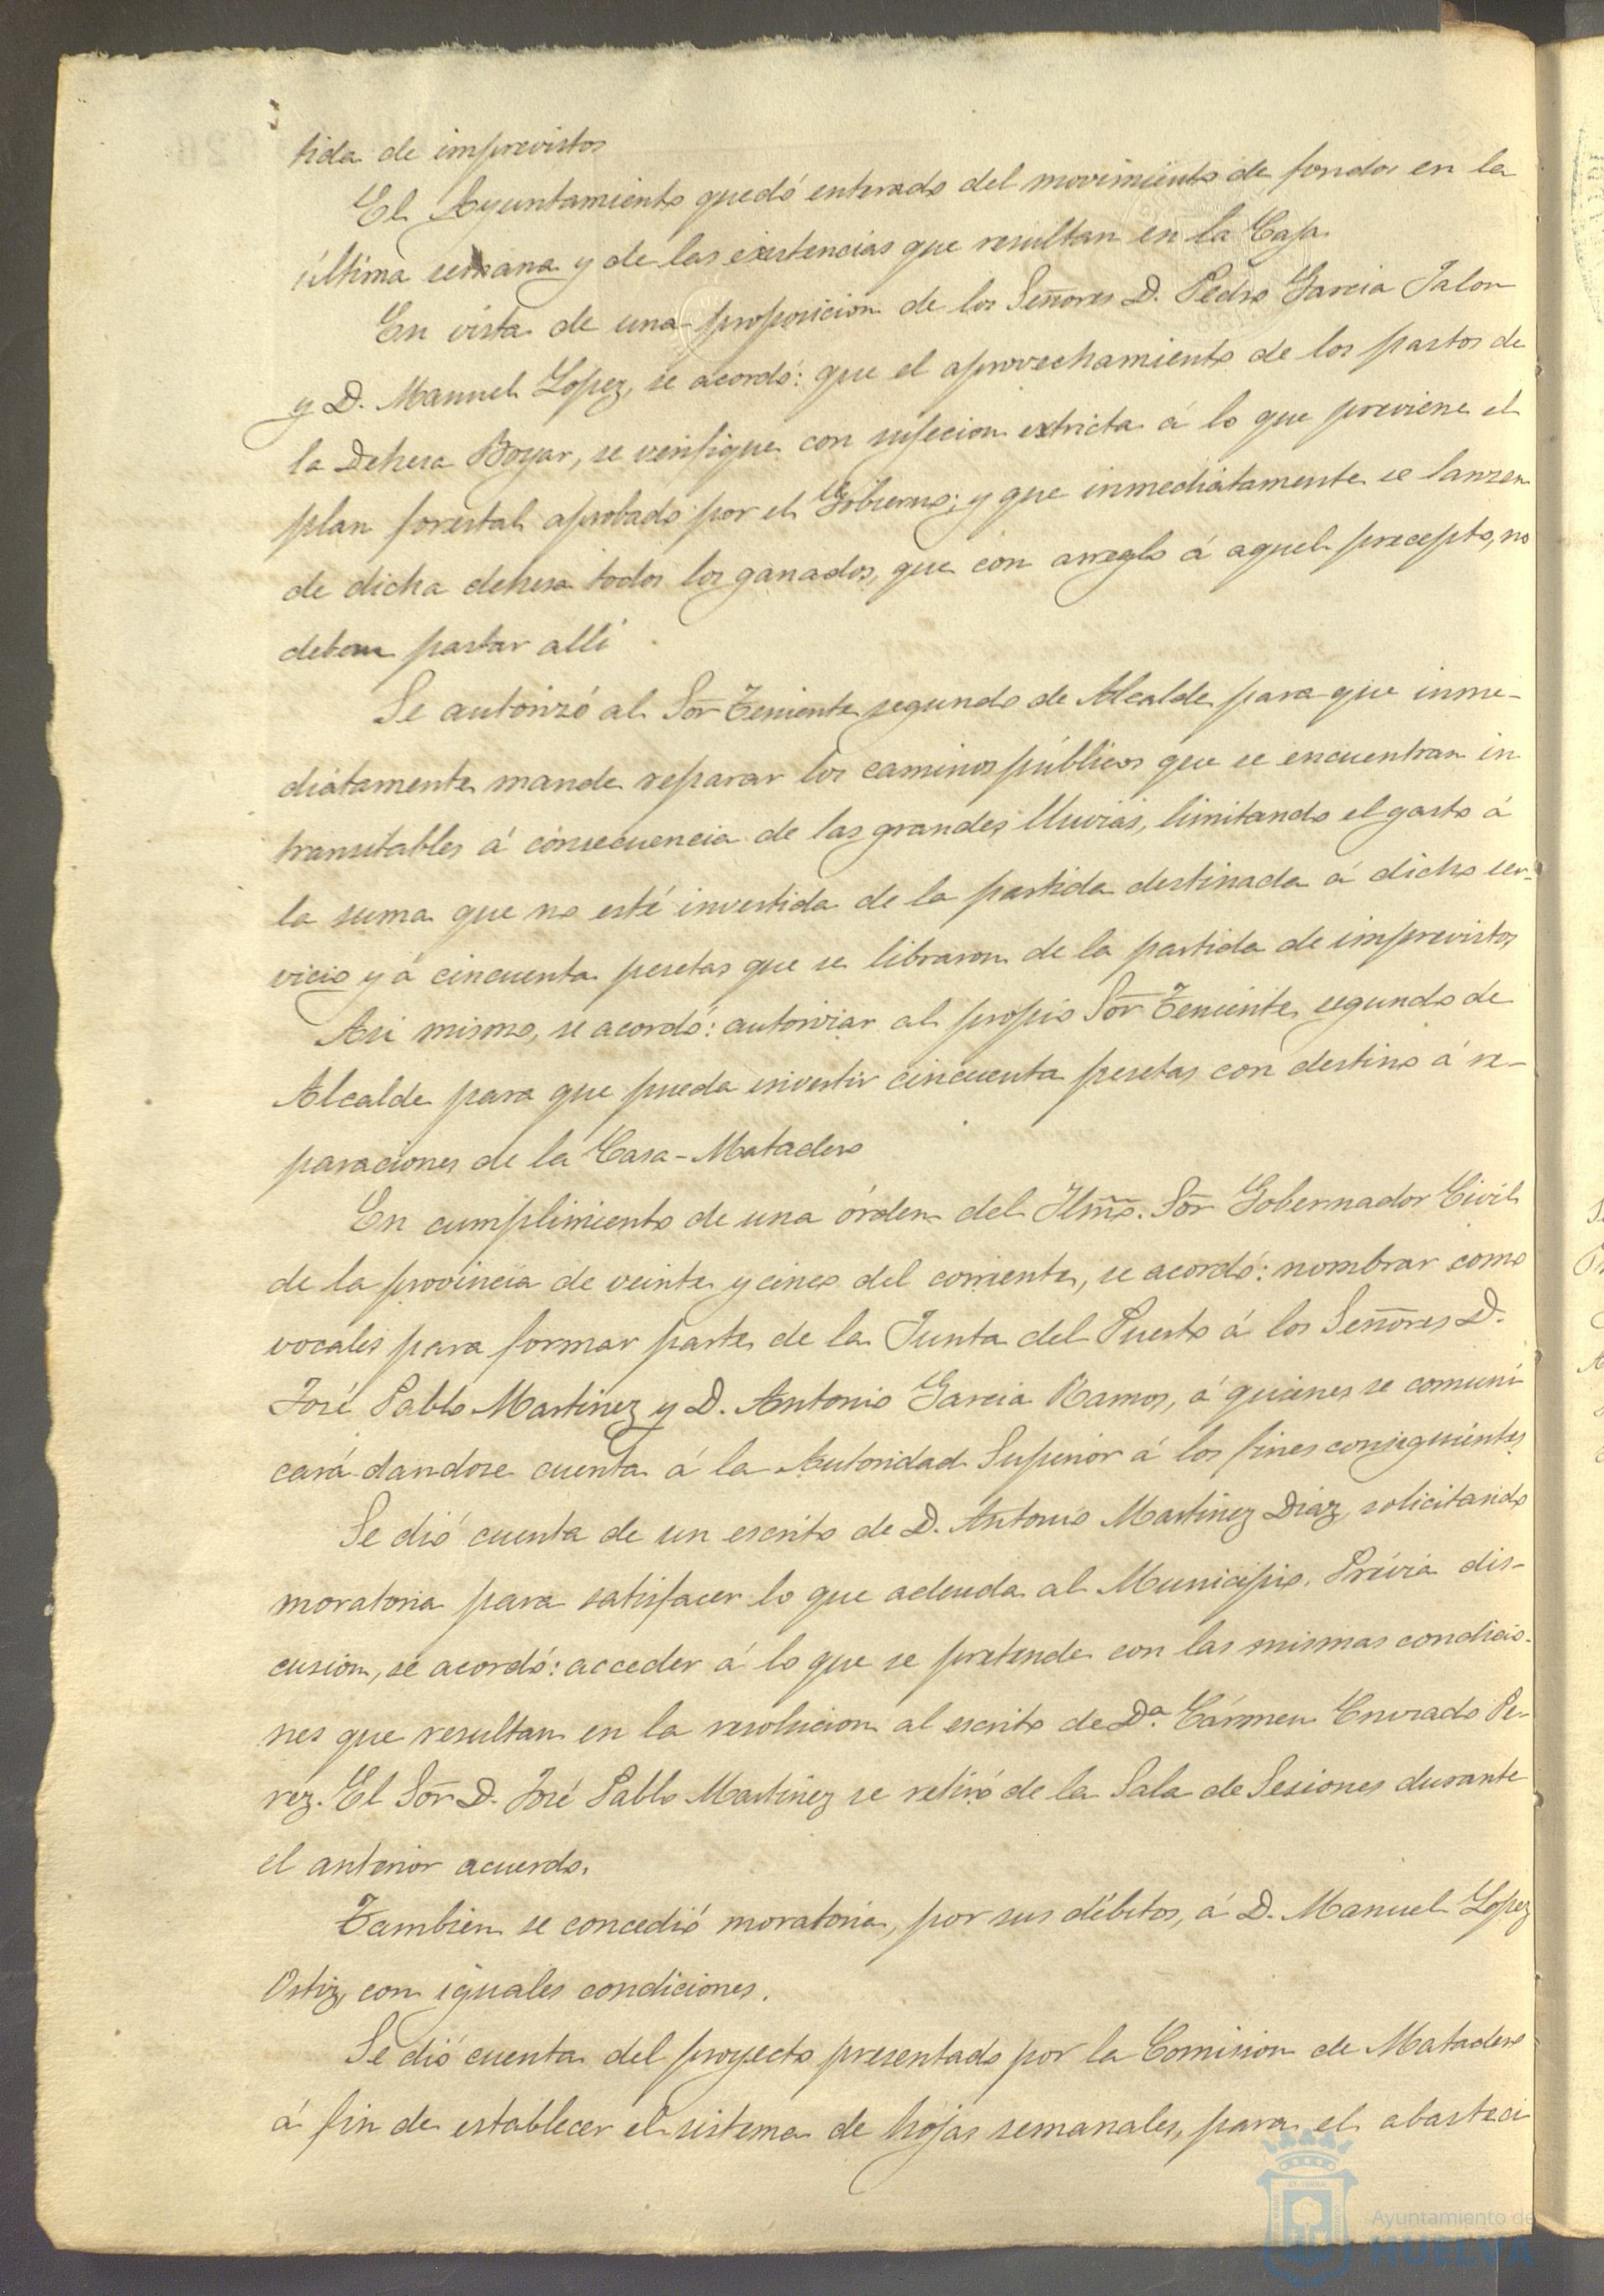 tida de imprevistos
El Ayuntamiento quedó enterado del movimiento de fondos en la
última semana y de las existencias que resultan en la Caja.
En vista de una proposicion de los Señores D. Pedro Garcia Jalon
y D. Manuel Lopez, se acordó: que el aprovechamiento de los pastos de
la Dehesa Boyar, se verifique con sujecion extricta á lo que previene el
plan forestal aprobado por el Gobierno; y que inmediatamente se lanzen
de dicha dehesa todos los ganados, que con arreglo á aquel precepto, no
deben pastar alli
Se autorizó al Sor Teniente segundo de Alcalde para que inme-
diatamente mande reparar los caminos públicos que se encuentran in
transitables á consecuencia de las grandes lluvias, limitando el gasto á
la suma que no esté invertida de la partida destinada á dicho ser-
vicio y á cincuenta pesetas que se libraron de la partida de imprevistos
Asi mismo, se acordó: autorizar al propio Sor Teniente segundo de
Alcalde para que pueda invertir cincuenta pesetas con destino á re-
paraciones de la Casa-Matadero
En cumplimiento de una órden del Iltmo. Sor Gobernador Civil
de la provincia de veinte y cinco del corriente, se acordó: nombrar como
vocales para formar parte de la Junta del Puerto á los Señores D.
José Pablo Martinez y D. Antonio Garcia Ramos, á quienes se comuni
cará dandose cuenta á la Autoridad Superior á los fines consiguientes
Se dió cuenta de un escrito de D. Antonio Martinez Diaz, solicitando
moratoria para satisfacer lo que adeuda al Municipio. Prévia dis-
cusion, se acordó: acceder á lo que se pretende con las mismas condicio-
nes que resultan en la resolucion al escrito de Dª. Cármen Conrado Pe-
rez. El Sor D. José Pablo Martinez se retiró de la Sala de Sesiones durante
el anterior acuerdo.
Tambien se concedió moratoria, por sus débitos, á D. Manuel Lopez
Ortiz, con iguales condiciones.
Se dió cuenta del proyecto presentado por la Comision de Matadero
á fin de establecer el sistema de hojas semanales, para el abasteci
Ayuntamiento de
HUELVA